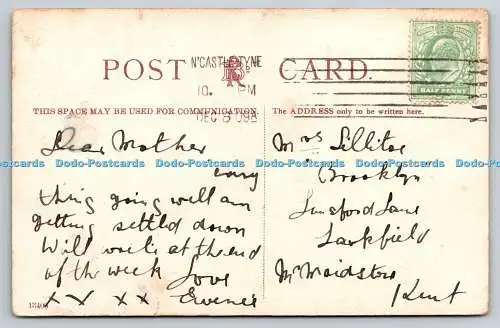 POST CARD.
N'CASTLE TYNE
10. PM
DEC 8 09
HALF PENNY
THIS SPACE MAY BE USED FOR COMMUNICATION.
The ADDRESS only to be written here.
Dear Mother
thing going well am
getting settled down
Will write at the end
of the week Love
x x x x
Mrs Sillitoe
"Brooklyn"
Lunsford Lane
Larkfield
Nr Maidstone
Kent
Dodo-Postcards Dodo-Postcards Dodo-Postcards Dodo-Postcards Dodo-Postcards